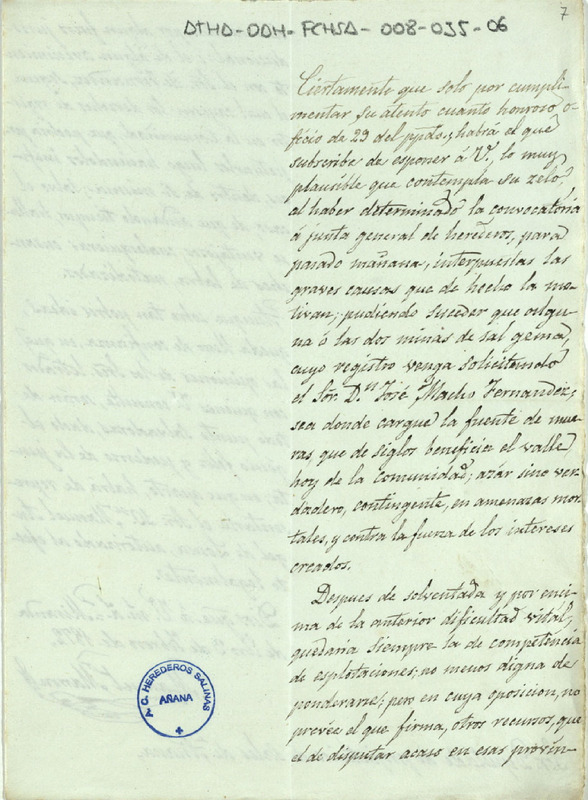 7
ATHA-DAH-FCHSA-008-035-06
Ciertamente que solo por cumpli
mentar su atento cuanto honroso, o-
ficio de 29 del ppdo, habrá el que
subscribe de esponer á V., lo muy
plausible que contempla su zelo,
al haber determinado la convocatoria
á junta general de herederos, para
pasado mañana, interpuestas las
graves causas que de hecho la mo-
tivan; pudiendo suceder que algu-
na ó las dos minas de sal gemma,
cuyo registro venga solicitando
el Sor. Dn. José Macho Fernandez,
sea donde cargue la fuente de mue-
ras, que de siglos beneficia el valle
hoy de la comunidad; azár sino ver-
dadero, contingente, en amenazas mor-
tales, y contra la fuerza de los intereses
creados.
Despues de solventada y por enci-
ma de la anterior dificultad vital;
quedaria siempre la de competencia
de esplotaciones; no menos digna de
ponderarse; pero en cuya oposicion, no
prevée el que firma, otros recursos, que
el de disputar acaso en esas provin-
P. C. HEREDEROS SALINAS
AÑANA